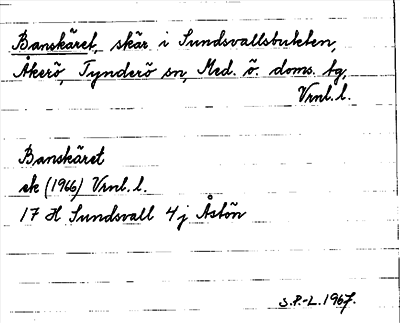 Banskäret, skär i Sundsvallsbukten,
Åkerö, Tynderö sn, Med. ö. doms. tg,
Vrnl. l.
Banskäret
ek (1966) Vrnl. l.
17 H Sundsvall 4j Åstön
S.P-L. 1967.